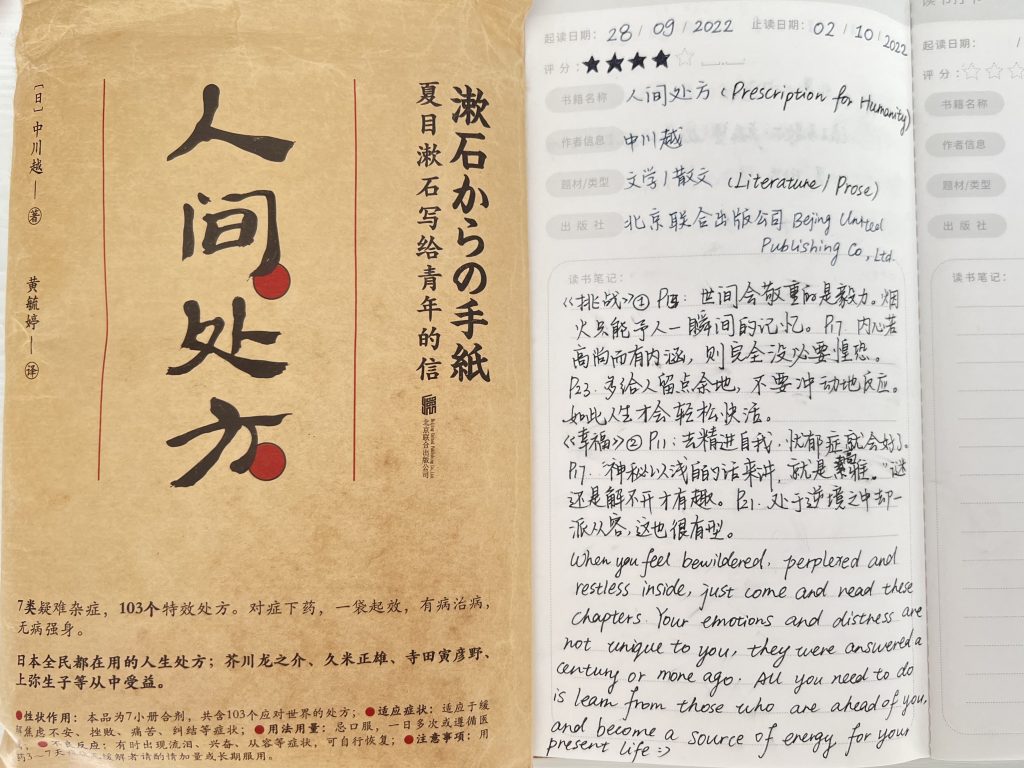 漱石からの手紙
夏目漱石写给青年的信
人间处方
〔日〕中川越—著
黄毓婷—译
北京联合出版公司
7类疑难杂症，103个特效处方。对症下药，一袋起效，有病治病，
无病强身。
日本全民都在用的人生处方；芥川龙之介、久米正雄、寺田寅彦野、
上弥生子等从中受益。
●性状作用：本品为7小册合剂，共含103个应对世界的处方；●适应症状：适应于缓
解焦虑不安、挫败、痛苦、纠结等症状；●用法用量：忌口服，一日多次或遵循医
●不良反应：有时出现流泪、兴奋、从容等症状，可自行恢复；●注意事项：用
药3～7天 缓解者请酌情加量或长期服用。
起读日期： 28 / 09 / 2022 止读日期： 02 / 10 / 2022
评分：★★★★☆
书籍名称 人间处方 (Prescription for Humanity)
作者信息 中川越
题材/类型 文学/散文 (Literature/Prose)
出版社 北京联合出版公司 Bejing United
Publishing Co., Ltd.
读书笔记：
《挑战》① 世间会敬重的是毅力。烟
火只能予人一瞬间的记忆。P17. 内心若
高尚而有内涵，则完全没必要惶恐。
P23. 多给人留点余地，不要冲动地反应。
如此人生才会轻松快活。
《幸福》② P11：去精进自我，忧郁症就会好了。
P17. 神秘以浅白的话来讲，就是 "谜
还是解不开才有趣。P21. 处于逆境之中却一
派从容，这也很有型。
When you feel bewildered, perplexed and
restless inside, just come and read these
chapters. Your emotions and distress are
not unique to you, they were answered a
century or more ago. All you need to do
is learn from those who are ahead of you,
and become a source of energy for your
present life :)
起读日期： /
评分：☆☆☆
书籍名称
作者信息
题材/类型
出版社
读书笔记：